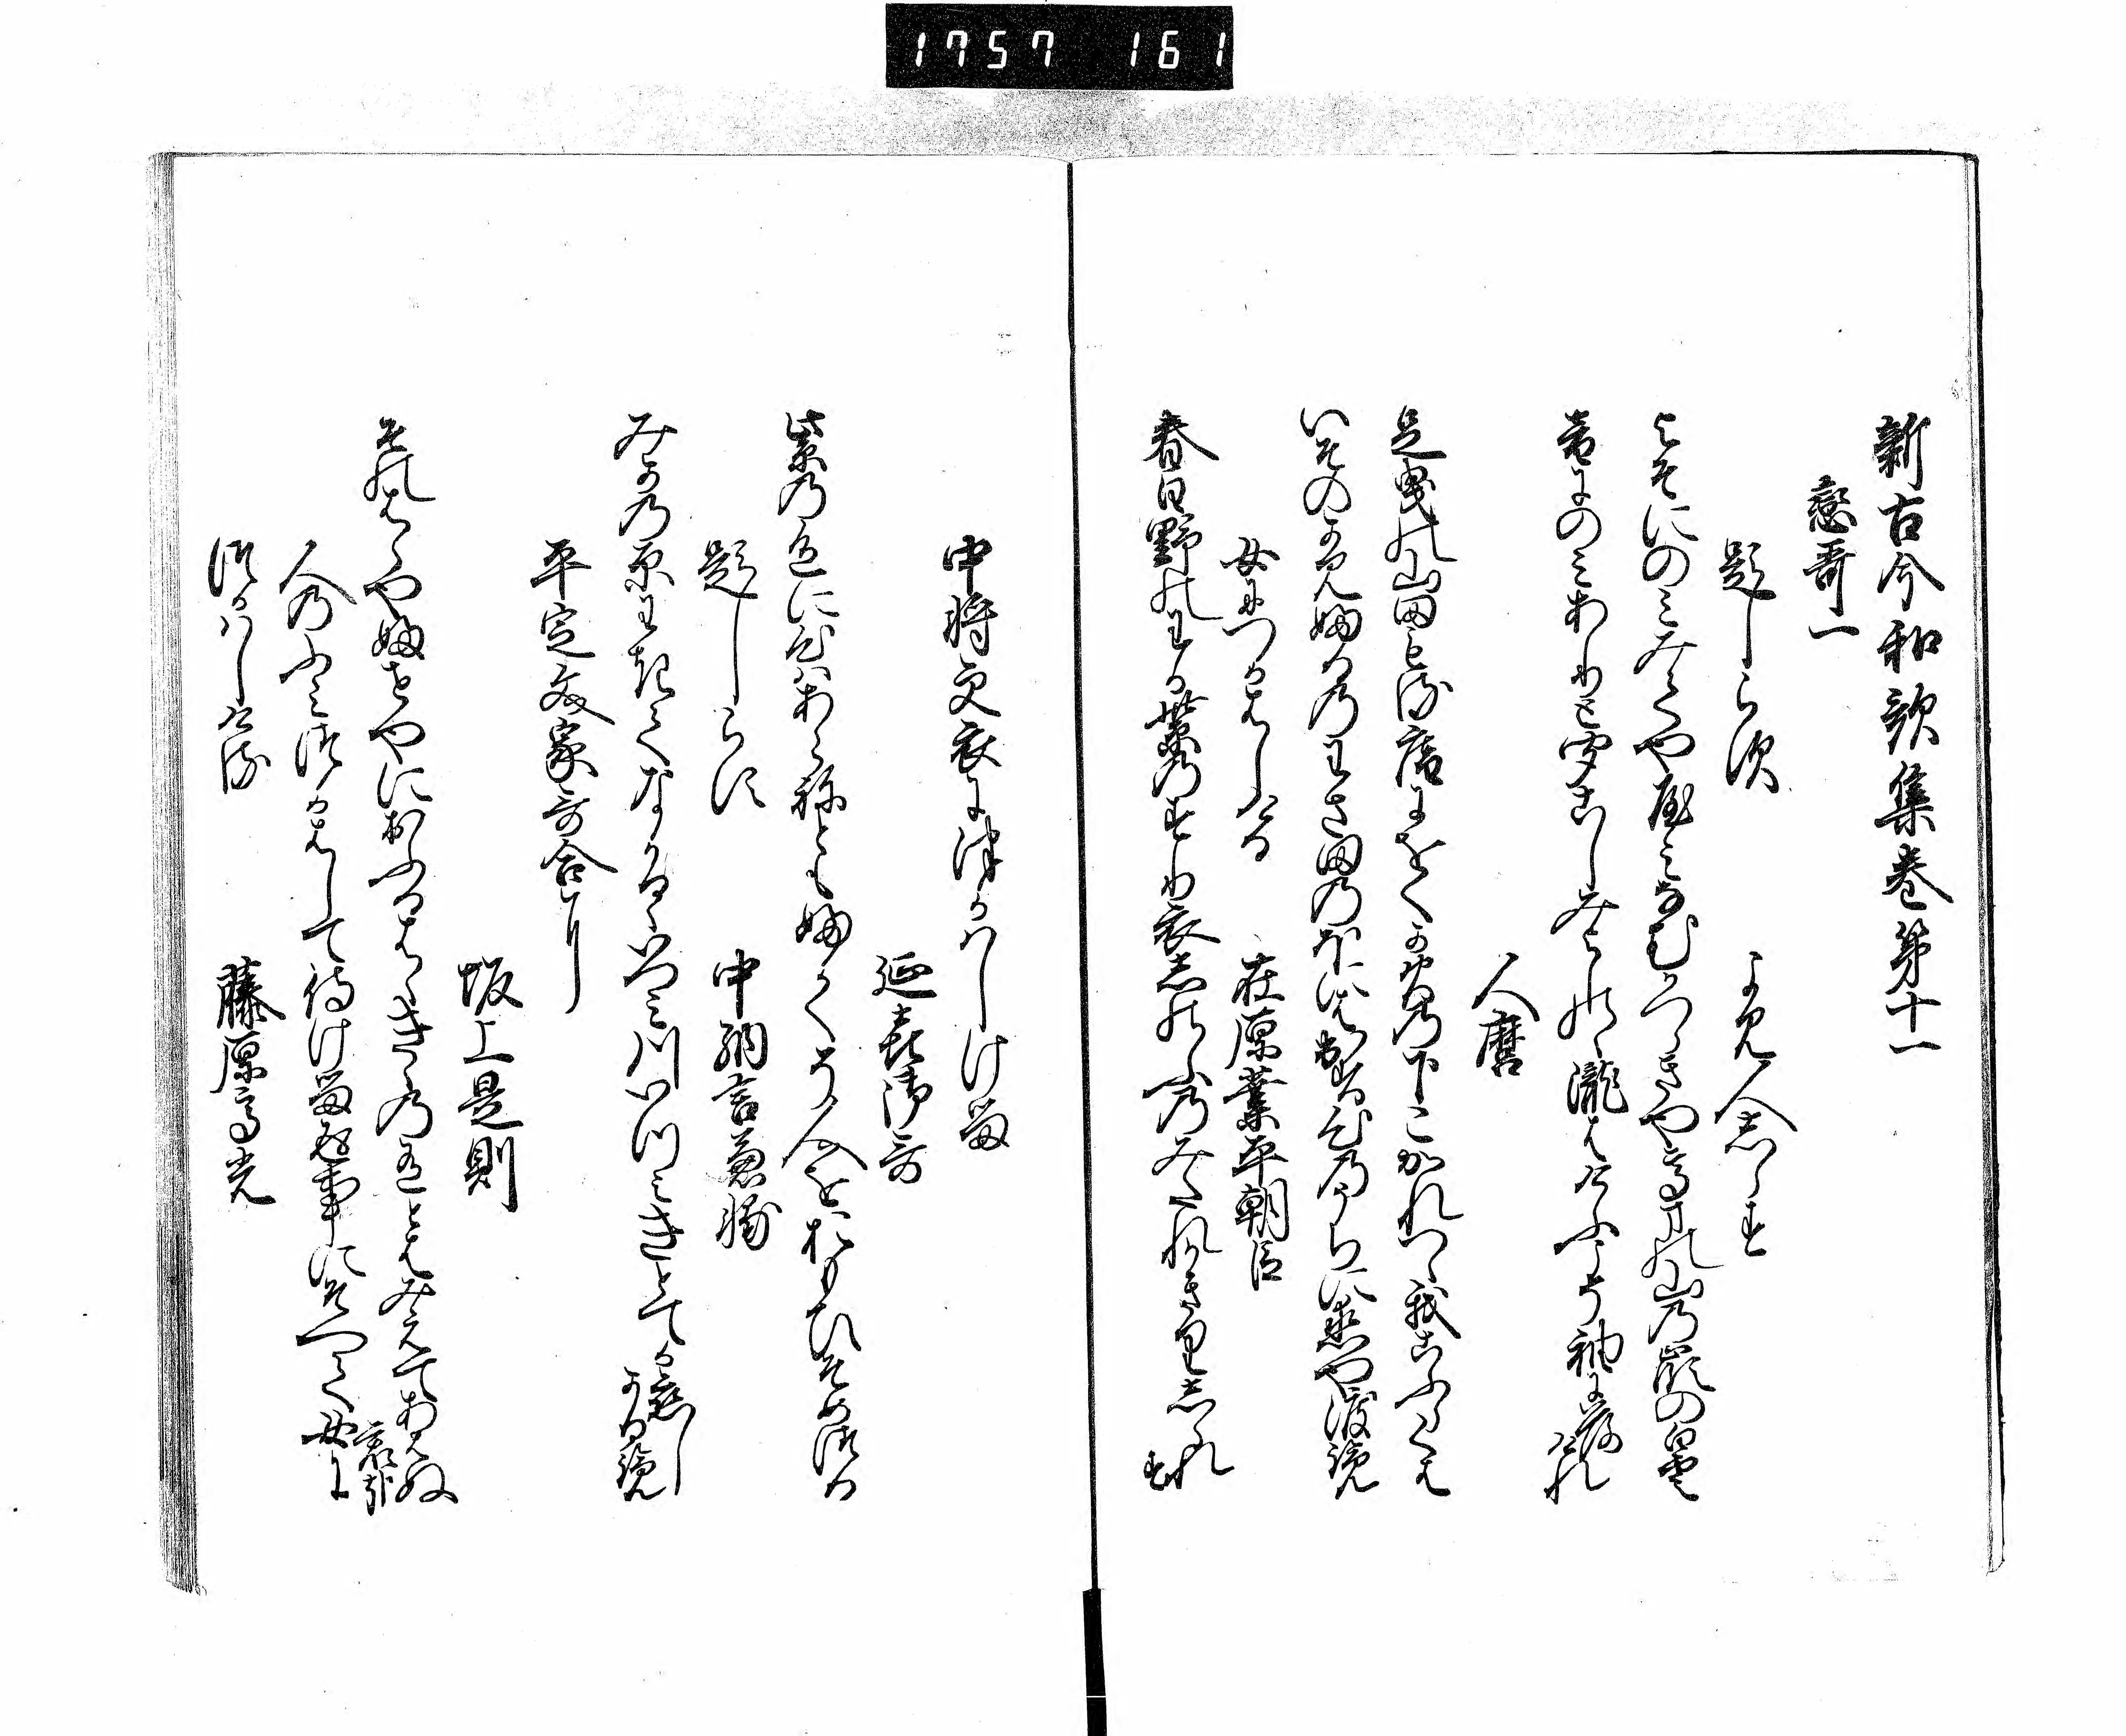 1757 161
新古今和歌集巻第十一
恋哥一
題しらす　よみ人しらす
よそにのみみてややみなむかつらきや高まの山乃嶺の白雲
音にのみありときゝこしみよしのゝ瀧はけふこそ袖に落けれ
人麿
足曳の山田もる庵にをくか火の下こかれつゝ我こふらくは
いそのかみふるのわさ田のほにはいてす心のうちに恋や渡らん
女につかはしける　在原業平朝臣
春日野のわか紫のすり衣しのふのみたれかきりしられす
中将更衣につかはしける
延喜御哥
紫の色に心はあらねともふかくそ人をおもひそめつる
題しらす　中納言兼輔
みかの原わきてなかるゝいつみ川いつみきとてか恋しかるらん
平定文家哥合に
坂上是則
その原やふせやにおふるはゝきゝのありとはみえてあはぬ君哉
人のふみつかはして侍ける返事にそへて女に
つかはしける　藤原高光